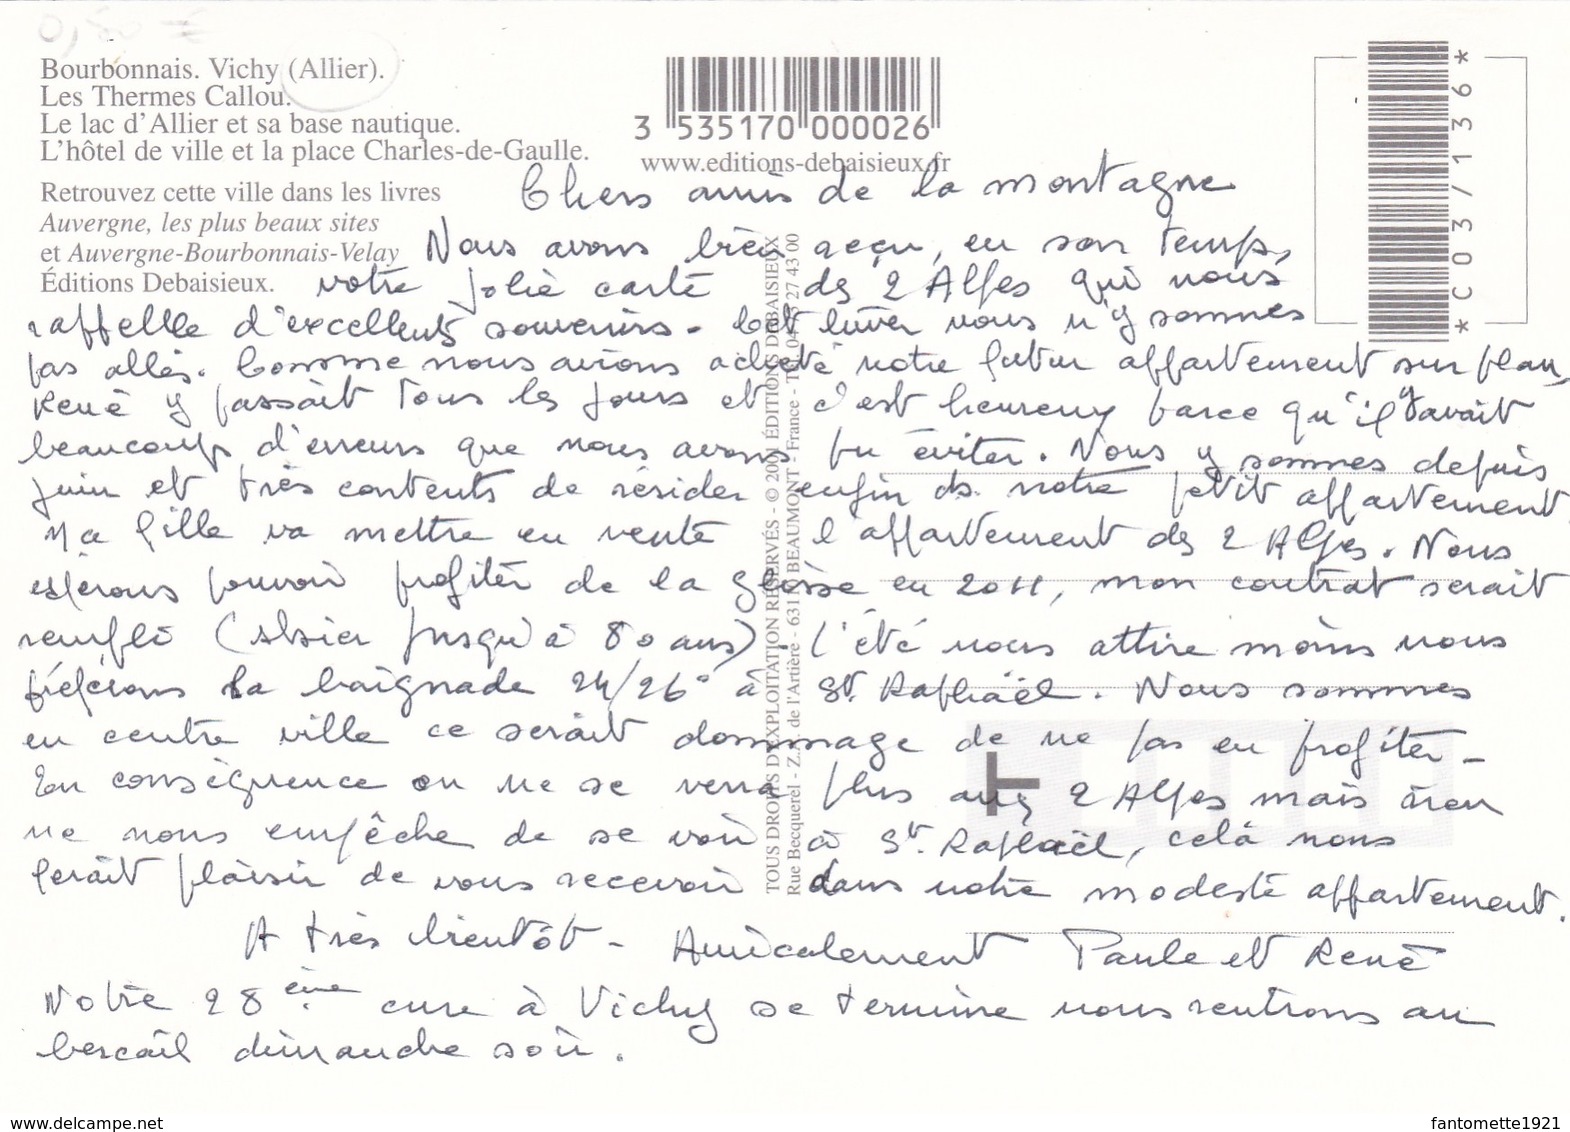 0,50 €
Bourbonnais. Vichy (Allier).
Les Thermes Callou.
Le lac d'Allier et sa base nautique.
L'hôtel de ville et la place Charles-de-Gaulle.
Retrouvez cette ville dans les livres
Auvergne, les plus beaux sites
et Auvergne-Bourbonnais-Velay
Éditions Debaisieux.
3 535170 000026
www.editions-debaisieux.fr
*C03/136*
TOUS DROITS D'EXPLOITATION RÉSERVÉS - © 2001 ÉDITIONS DEBAISIEUX
Rue Becquerel - Z.A. de l'Artière - 63110 BEAUMONT - France - Tél. 04 73 27 43 00
Chers amis de la montagne
Nous avons bien reçu, en son temps,
votre jolie carte des 2 Alpes qui nous
rappelle d'excellents souvenirs. Cet hiver nous n'y sommes
pas allés. Comme nous avions acheté notre futur appartement sur plan,
René y passait tous les jours et c'est heureux parce qu'il y avait
beaucoup d'erreurs que nous avons pu éviter. Nous y sommes depuis
juin et très contents de résider enfin ds. notre petit appartement.
Ma fille va mettre en vente l'appartement des 2 Alpes. Nous
espérons pouvoir profiter de la glisse en 2011, mon contrat serait
rempli (skier jusqu'à 80 ans). L'été nous attire moins nous
préférons la baignade 24/26° à St. Raphaël. Nous sommes
en centre ville ce serait dommage de ne pas en profiter -
En conséquence on ne se verra plus aux 2 Alpes mais rien
ne nous empêche de se voir à St. Raphaël, celà nous
ferait plaisir de vous recevoir dans notre modeste appartement.
A très bientôt - Amicalement Paule et René
Notre 28ème cure à Vichy se termine nous rentrons au
bercail dimanche soir.
T
www.delcampe.net
fantomette1921